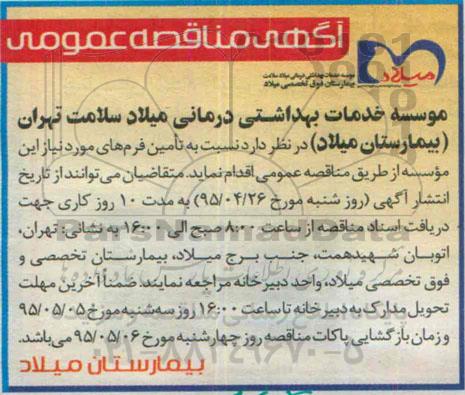 آگهی مناقصه عمومی
میلاد
موسسه خدمات بهداشتی درمانی میلاد سلامت
بیمارستان فوق تخصصی میلاد
موسسه خدمات بهداشتی درمانی میلاد سلامت تهران
(بیمارستان میلاد) در نظر دارد نسبت به تأمین فرم‌های مورد نیاز این
مؤسسه از طریق مناقصه عمومی اقدام نماید. متقاضیان می‌توانند از تاریخ
انتشار آگهی (روز شنبه مورخ ۹۵/۰۴/۲۶) به مدت ۱۰ روز کاری جهت
دریافت اسناد مناقصه از ساعت ۸:۰۰ صبح الی ۱۶:۰۰ به نشانی: تهران،
اتوبان شهیدهمت، جنب برج میلاد، بیمارستان تخصصی و
فوق تخصصی میلاد، واحد دبیرخانه مراجعه نمایند. ضمناً آخرین مهلت
تحویل مدارک به دبیرخانه تا ساعت ۱۶:۰۰ روز سه‌شنبه مورخ ۹۵/۰۵/۰۵
و زمان بازگشایی پاکات مناقصه روز چهارشنبه مورخ ۹۵/۰۵/۰۶ می‌باشد.
بیمارستان میلاد
ParsNamadData
۰۲۱-۸۸۳۴۹۶۷۰-۵